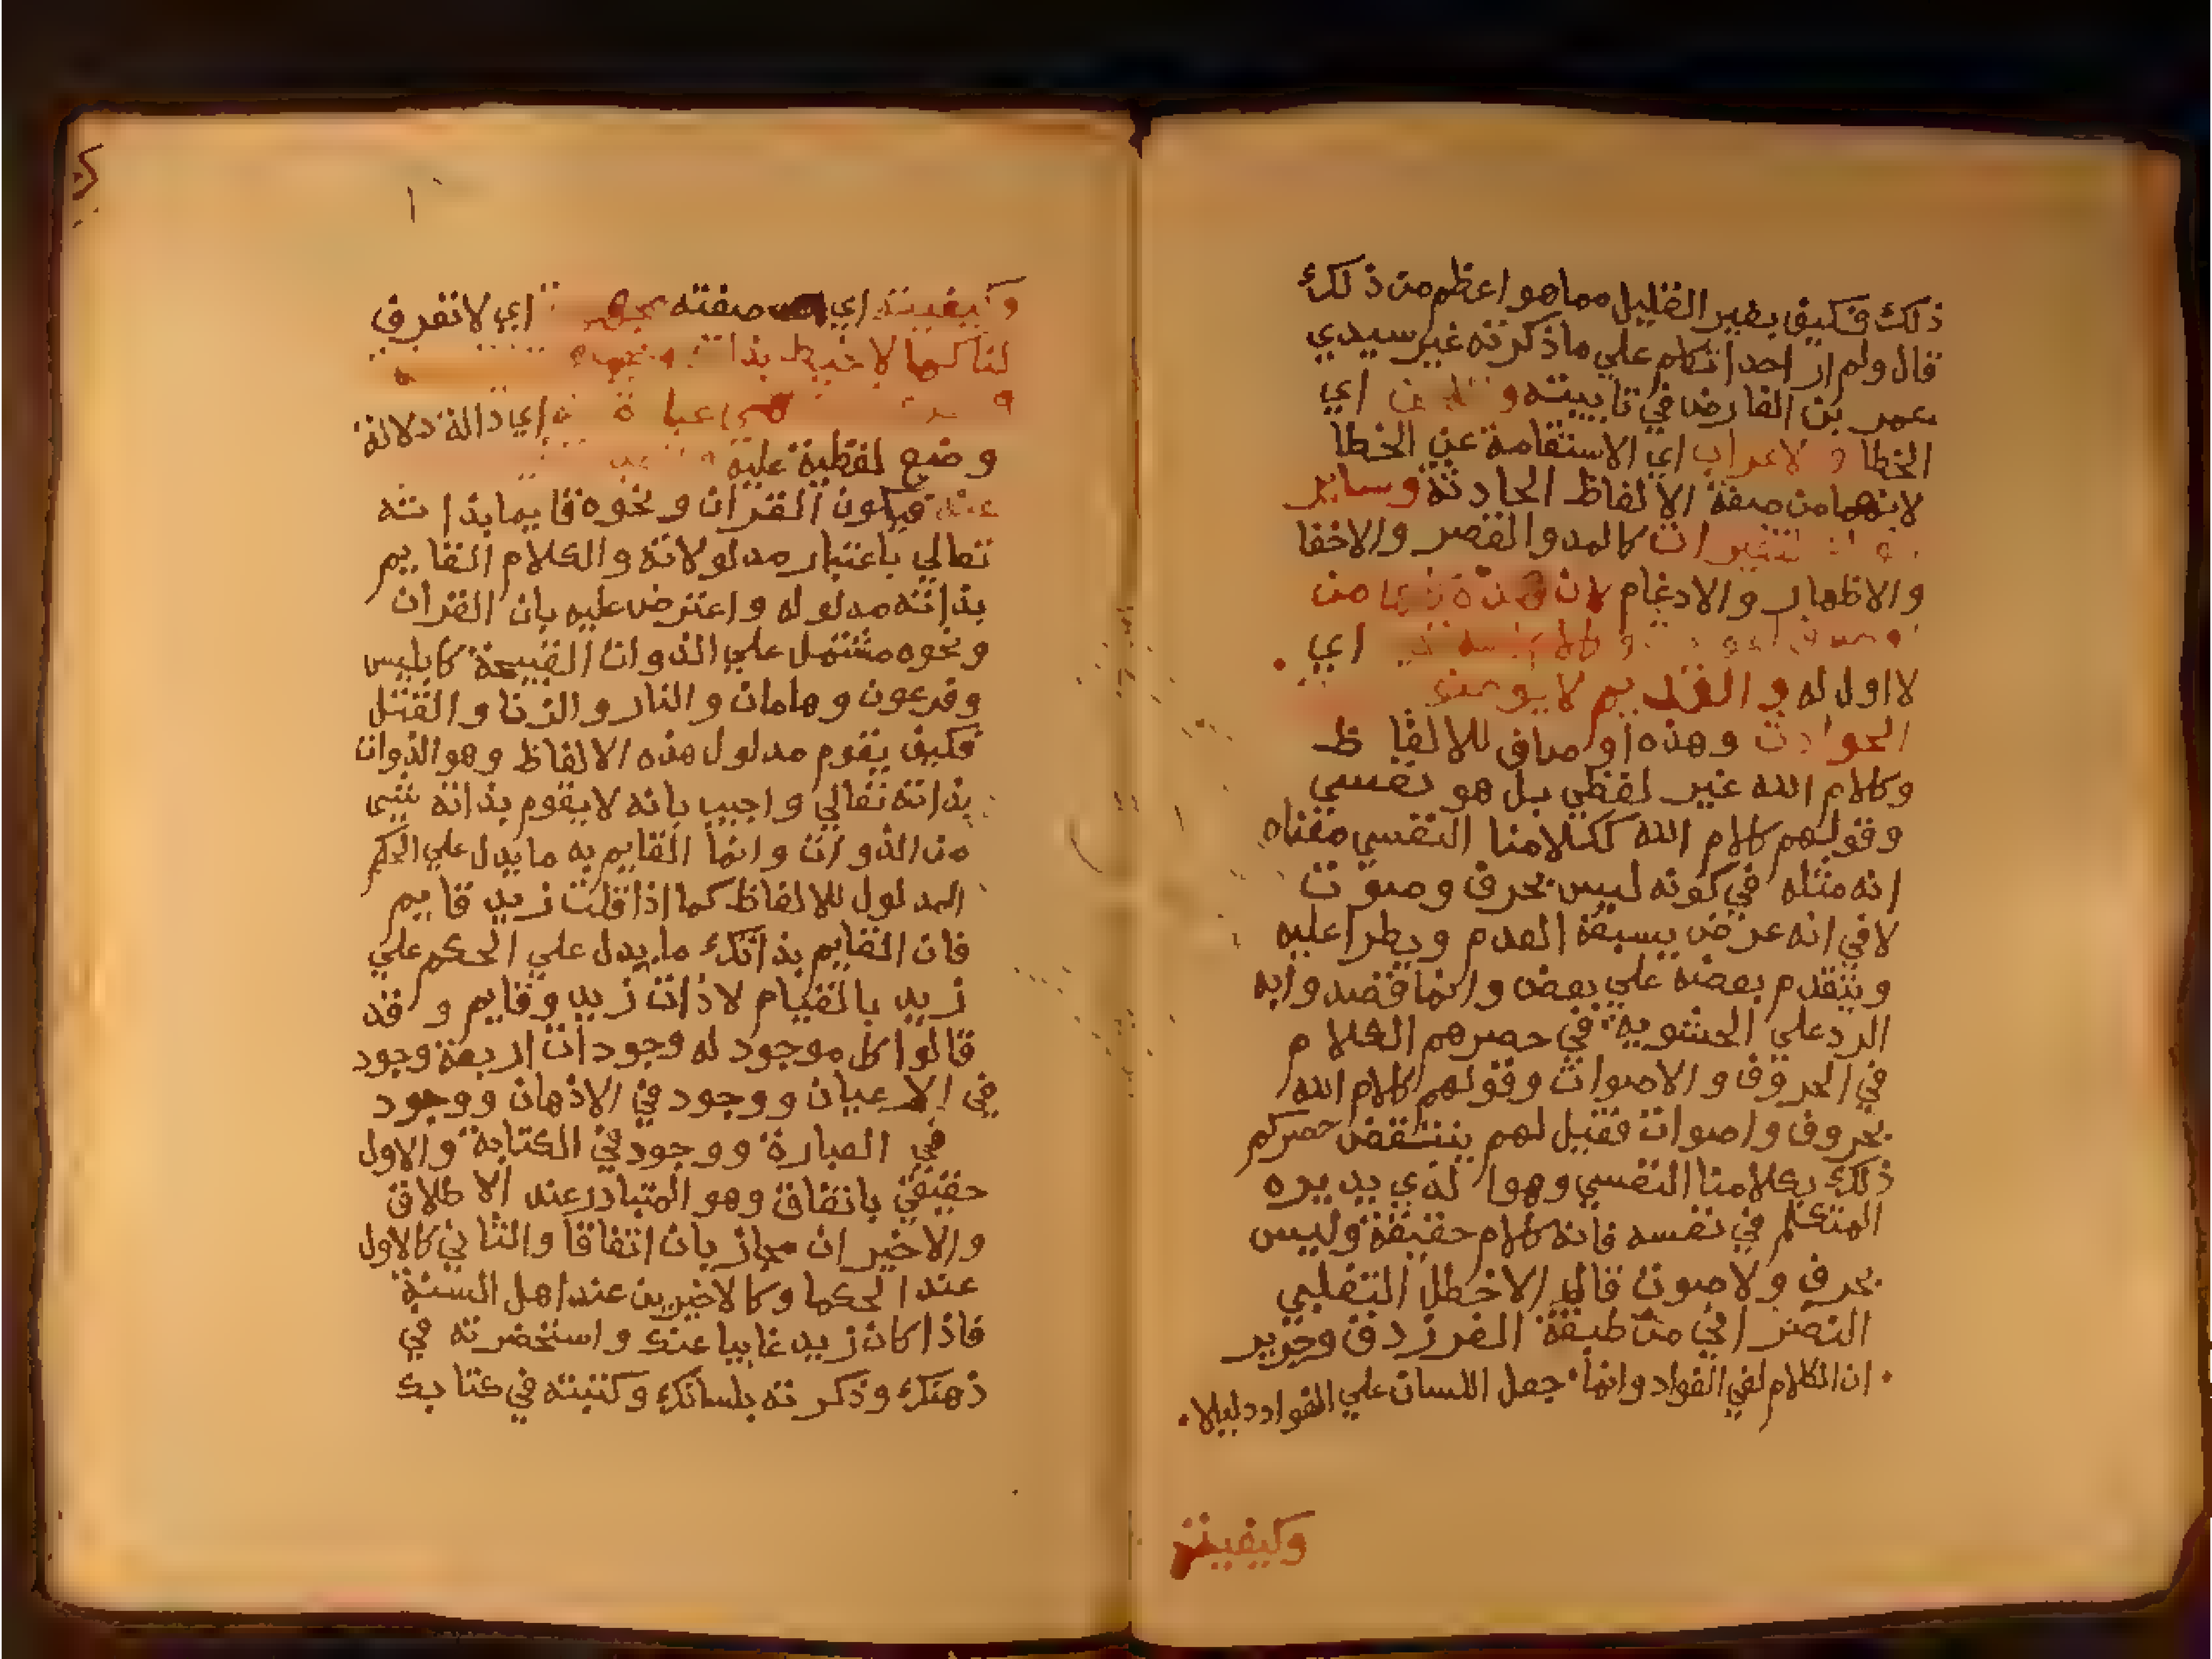 ذلك فكيف بغير القليل مما هو اعظم من ذلك
قال ولم ار احدا تكلم علي ما ذكرته غير سيدي
عمر بن الفارض في تاييته و اي
الخطا والاعراب اي الاستقامة عن الخطا
لانهما من صفة الالفاظ الحادثة وساير
التغيرات كالمد والقصر والاخفا
والاظهار والادغام لان هذه كلها من
اي
لا اول له والقديم لا يوصف
الحوادث وهذه اوصاف للالفاظ
وكلام الله غير لفظي بل هو نفسي
وقولهم كلام الله ككلامنا النفسي معناه
انه مثله في كونه ليس بحرف وصوت
لا في انه عرض يسبقه العدم ويطرا عليه
ويتقدم بعضه علي بعض وانما قصدوا به
الرد علي الحشوية في حصرهم الكلام
في الحروف والاصوات وقولهم كلام الله
بحروف واصوات فقيل لهم ينتقض حصركم
ذلك بكلامنا النفسي وهو الذي يديره
المتكلم في نفسه فانه كلام حقيقة وليس
بحرف ولا صوت قال الاخطل التغلبي
النصراني من طبقة الفرزدق وجرير
ان الكلام لفي الفواد وانما جعل اللسان علي الفواد دليلا
وكيفيته
وكيفيته اي صفته اي لا تعرف
لنا كما لا نحيط بذاته
عبارة اي دالة دلالة
وضع لفظية عليه
عنه فيكون القران ونحوه قايما بذاته
تعالي باعتبار مدلولاته والكلام القايم
بذاته مدلوله واعترض عليه بان القران
ونحوه مشتمل علي الذوات القبيحة كابليس
وفرعون وهامان والنار والزنا والقتل
فكيف يقوم مدلول هذه الالفاظ وهو الذوات
بذاته تعالي واجيب بانه لا يقوم بذاته شي
من الذوات وانما القايم به ما يدل علي الحكم
المدلول للالفاظ كما اذا قلت زيد قايم
فان القايم بذاتك ما يدل علي الحكم علي
زيد بالقيام لا ذات زيد وقايم وقد
قالوا كل موجود له وجودات اربعة وجود
في الاعيان ووجود في الاذهان ووجود
في العبارة ووجود في الكتابة والاول
حقيقي باتفاق وهو المتبادر عند الاطلاق
والاخيران مجازيان اتفاقا والثاني كالاول
عند الحكما وكالاخيرين عند اهل السنة
فاذا كان زيد غايبا عنك واستحضرته في
ذهنك وذكرته بلسانك وكتبته في كتابك